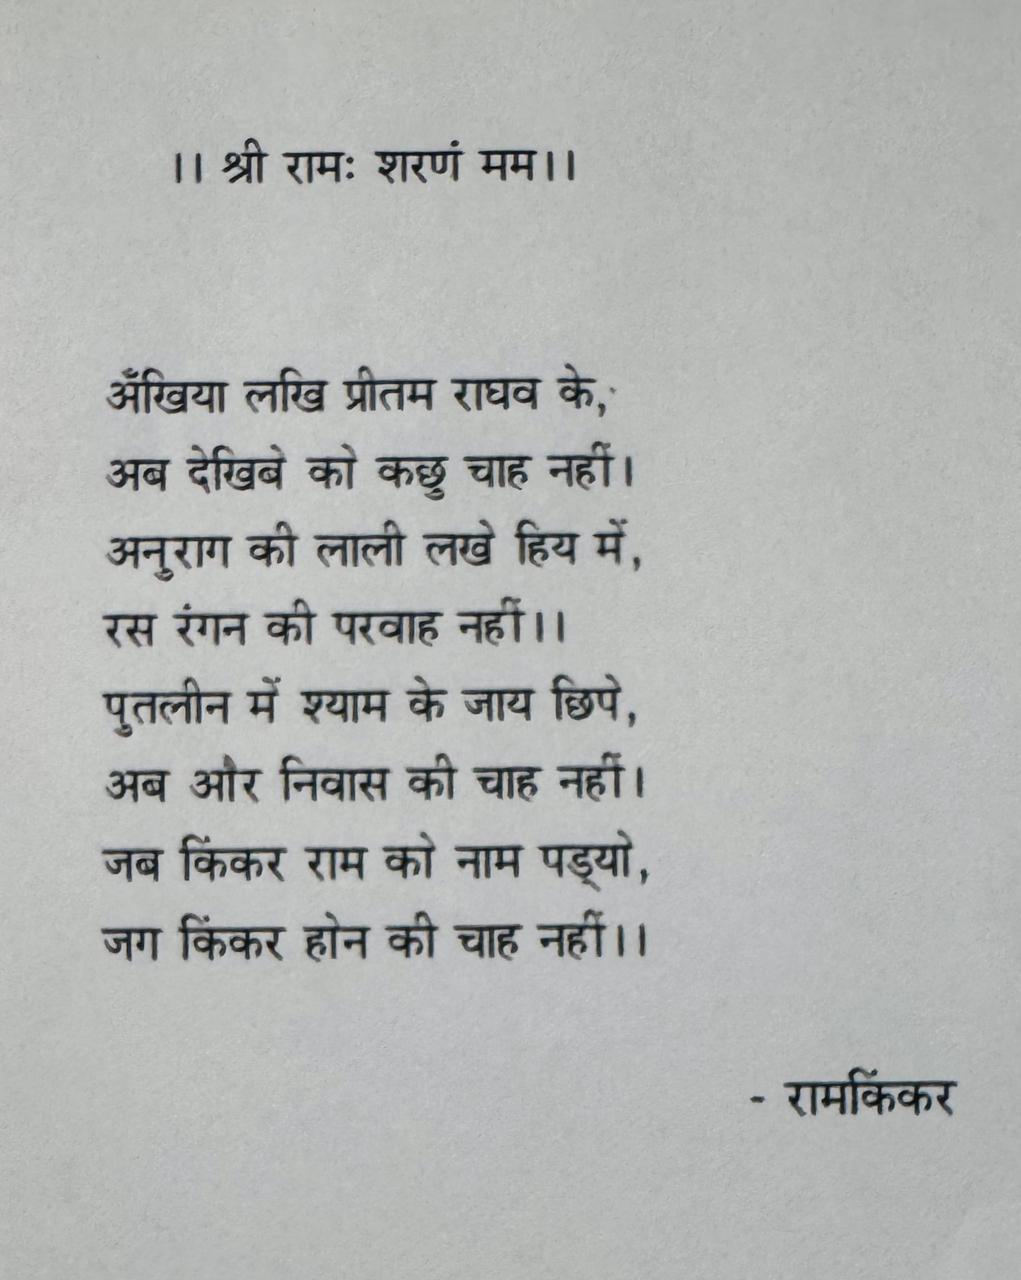 ।। श्री रामः शरणं मम।।
अँखिया लखि प्रीतम राघव के,
अब देखिबे को कछु चाह नहीं।
अनुराग की लाली लखे हिय में,
रस रंगन की परवाह नहीं।।
पुतलीन में श्याम के जाय छिपे,
अब और निवास की चाह नहीं।
जब किंकर राम को नाम पड्यो,
जग किंकर होन की चाह नहीं।।
- रामकिंकर